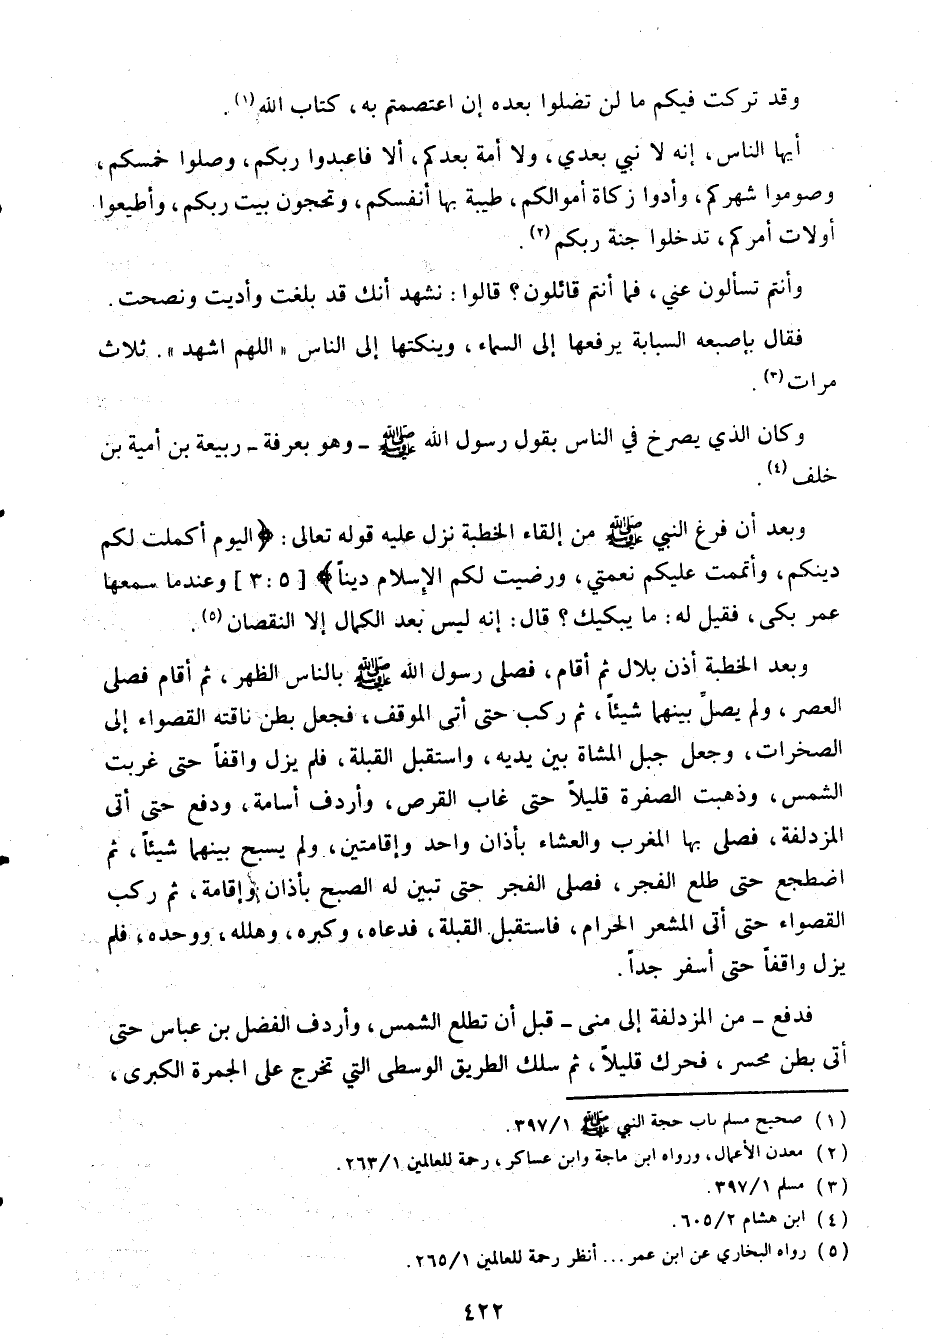 وقد تركت فيكم ما لن تضلوا بعده إن اعتصمتم به، كتاب الله(١).
أيها الناس، إنه لا نبي بعدي، ولا أمة بعدكم، ألا فاعبدوا ربكم، وصلوا خمسكم،
وصوموا شهركم، وأدوا زكاة أموالكم، طيبة بها أنفسكم، وتحجون بيت ربكم، وأطيعوا
أولات أمركم، تدخلوا جنة ربكم(٢).
وأنتم تسألون عني، فما أنتم قائلون؟ قالوا: نشهد أنك قد بلغت وأديت ونصحت.
فقال بإصبعه السبابة يرفعها إلى السماء، وينكتها إلى الناس «اللهم اشهد». ثلاث
مرات(٣).
وكان الذي يصرخ في الناس بقول رسول الله ﷺ ـ وهو بعرفة ـ ربيعة بن أمية بن
خلف(٤).
وبعد أن فرغ النبي ﷺ من إلقاء الخطبة نزل عليه قوله تعالى: ﴿اليوم أكملت لكم
دينكم، وأتممت عليكم نعمتي، ورضيت لكم الإسلام ديناً﴾ [٥: ٣] وعندما سمعها
عمر بكى، فقيل له: ما يبكيك؟ قال: إنه ليس بعد الكمال إلا النقصان(٥).
وبعد الخطبة أذن بلال ثم أقام، فصلى رسول الله ﷺ بالناس الظهر، ثم أقام فصلى
العصر، ولم يصلِّ بينهما شيئاً، ثم ركب حتى أتى الموقف، فجعل بطن ناقته القصواء إلى
الصخرات، وجعل جبل المشاة بين يديه، واستقبل القبلة، فلم يزل واقفاً حتى غربت
الشمس، وذهبت الصفرة قليلاً حتى غاب القرص، وأردف أسامة، ودفع حتى أتى
المزدلفة، فصلى بها المغرب والعشاء بأذان واحد وإقامتين، ولم يسبح بينهما شيئاً، ثم
اضطجع حتى طلع الفجر، فصلى الفجر حتى تبين له الصبح بأذان وإقامة، ثم ركب
القصواء حتى أتى المشعر الحرام، فاستقبل القبلة، فدعاه، وكبره، وهلله، ووحده، فلم
يزل واقفاً حتى أسفر جداً.
فدفع ـ من المزدلفة إلى منى ـ قبل أن تطلع الشمس، وأردف الفضل بن عباس حتى
أتى بطن محسر، فحرك قليلاً، ثم سلك الطريق الوسطى التي تخرج على الجمرة الكبرى،
(١) صحيح مسلم باب حجة النبي ﷺ ٣٩٧/١.
(٢) معدن الأعمال، ورواه ابن ماجة وابن عساكر، رحمة للعالمين ٢٦٣/١.
(٣) مسلم ٣٩٧/١.
(٤) ابن هشام ٦٠٥/٢.
(٥) رواه البخاري عن ابن عمر... أنظر رحمة للعالمين ٢٦٥/١.
٤٢٢